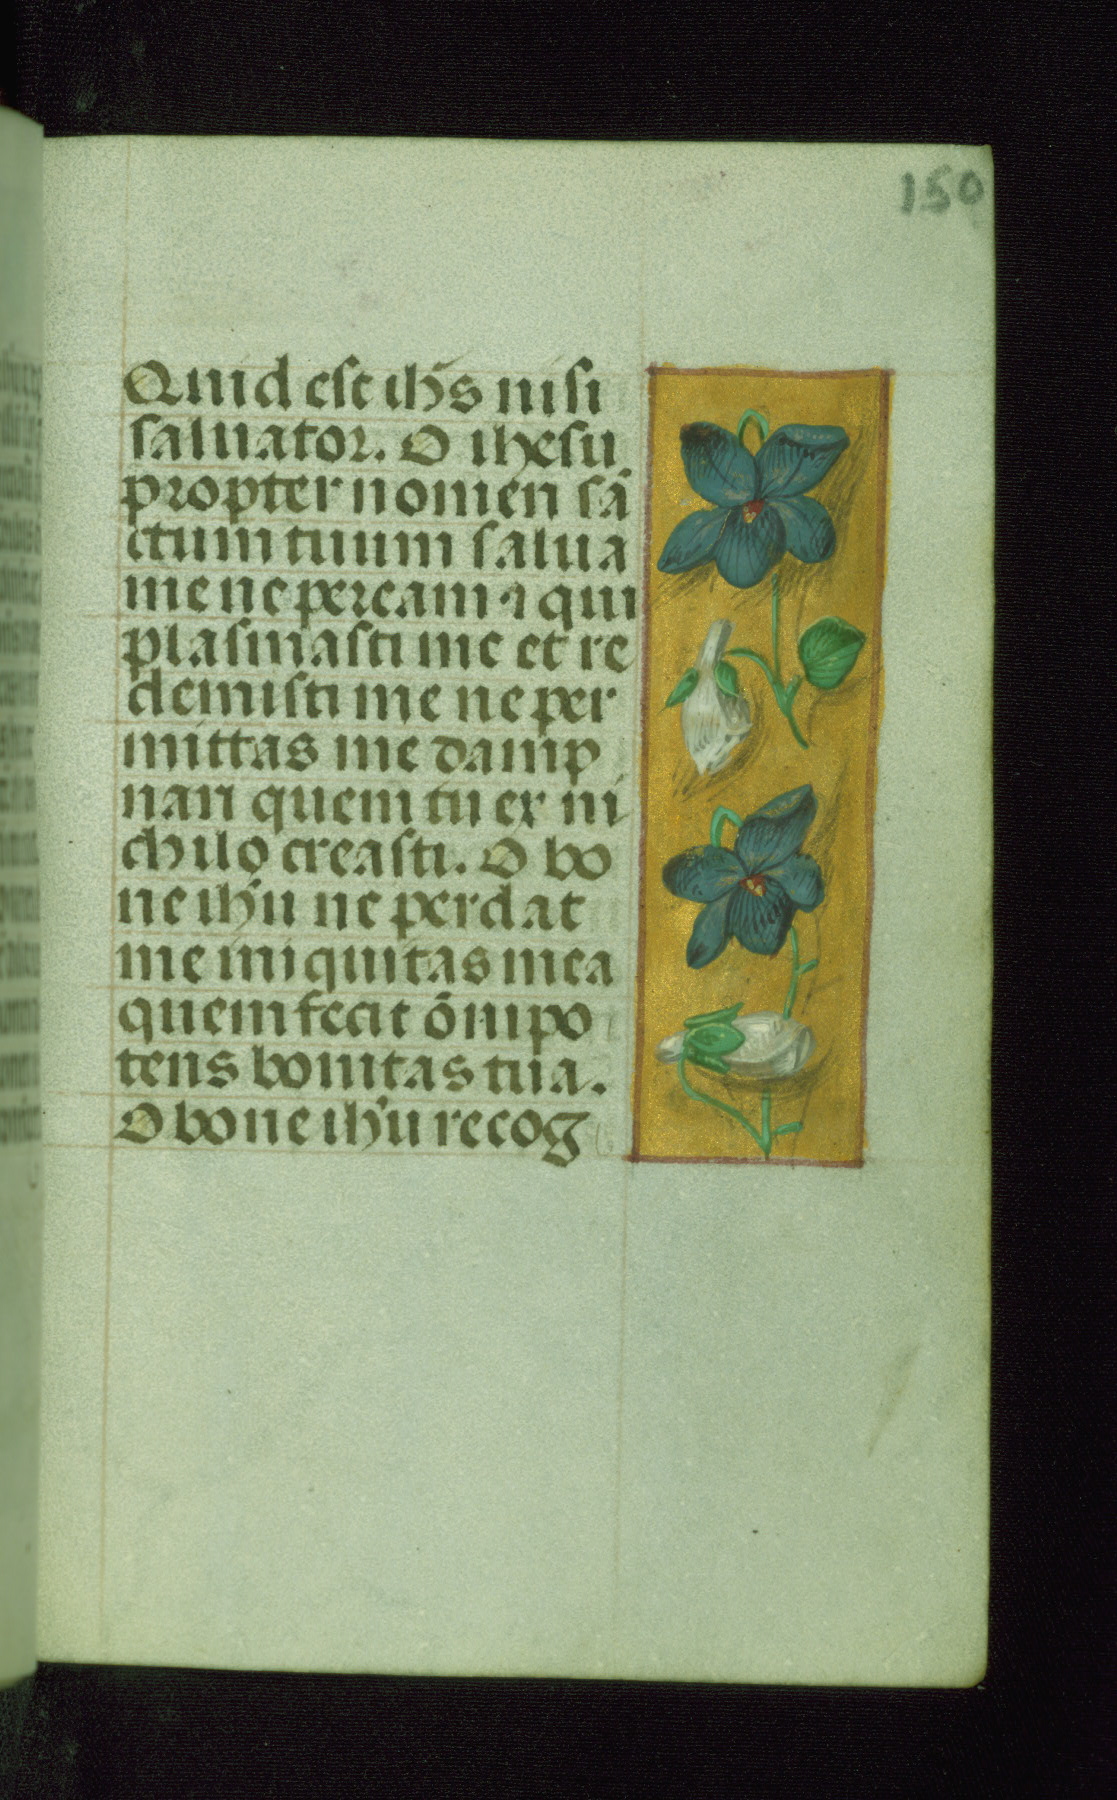 150
Quid est ihs̄ nisi
saluator. O ihesu
propter nomen sā
ctum tuum salua
me ne peream ⁊ qui
plasmasti me et re
demisti me ne per
mittas me damp
nari quem tu ex ni
chilo creasti. O bo
ne ihū ne perdat
me iniquitas mea
quem fecit ōnipo
tens bonitas tua.
O bone ihū recog